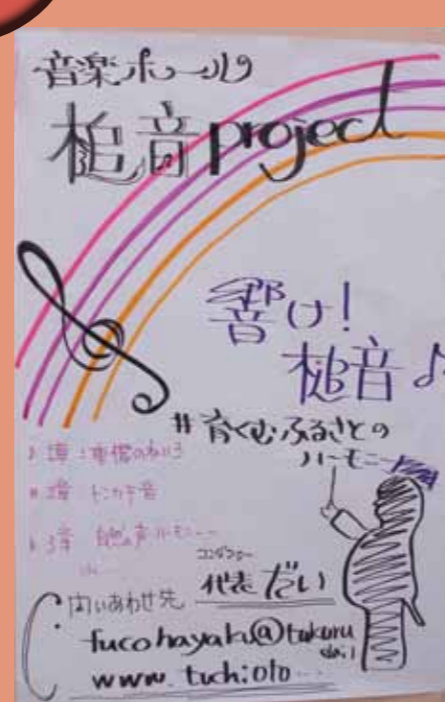 音楽ホール
槌音project
響け!
槌音♪
#育くむふるさとの
ハーモニー
♪1章:
#2章 トンカチ音
♭3章 自然の声ハーモニー…
問いあわせ先
代表 だい
fucohayaku@tukuru
www.tuchioto…